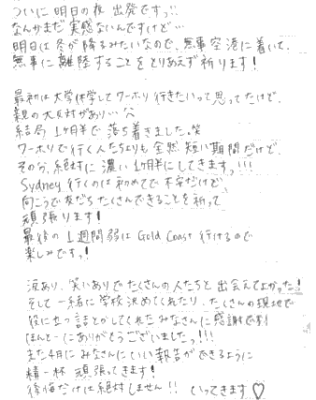 ついに明日の夜 出発ですっ!!
なんかまだ実感ないんですけど…
明日は冬が降るみたいなので、無事空港に着いて、
無事に離陸することをとりあえず祈ります!
最初は大学休学してワーホリ行きたいって思ってたけど、
親の大反対があり…
結局1ヶ月半で落ち着きました。笑
ワーホリで行く人たちよりも全然短い期間だけど、
その分、絶対に濃い1ヶ月半にしてきますっ!!!
Sydney行くのは初めてで不安だけど、
向こうで友だちたくさんできることを祈って
頑張ります!
最後の1週間弱はGold Coast行けるので
楽しみですっ!
涙あり、笑いありでたくさんの人たちと出会えてよかった!
そして一緒に学校決めてくれたり、たくさんの現地で
役に立つ話とかしてくれたみなさんに感謝です!
ほんとーにありがとうございましたっ!!!
また4月にみなさんにいい報告ができるように
精一杯 頑張ってきます!
後悔だけは絶対しません!! いってきます♡